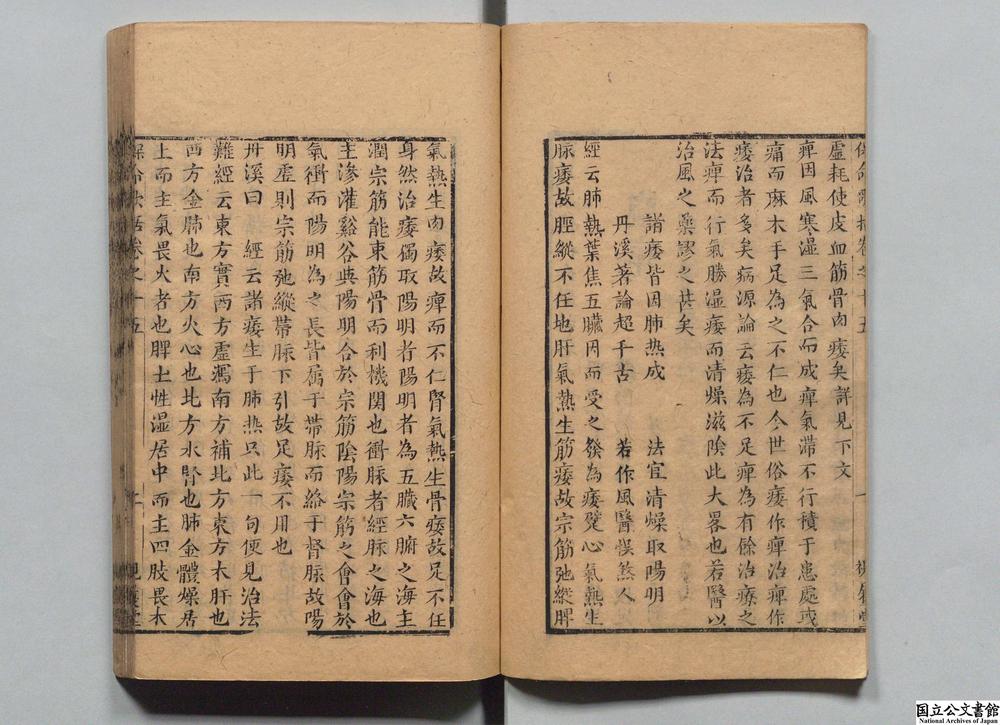 保命歌括卷之十五
虛耗使皮血筋骨肉痿矣詳見下文
痺因風寒濕三氣合而成痺氣滯不行積于患處或
痛而麻木手足為之不仁也今世俗痿作痺治痺作
痿治者多矣病源論云痿為不足痺為有餘治療之
法痺而行氣勝濕痿而清燥滋陰此大畧也若醫以
治風之藥謬之甚矣
諸痿皆因肺热成 法宜清燥取陽明
丹溪著論超千古 若作風醫悞煞人
經云肺熱葉焦五臟因而受之發為痿躄心氣熱生
脉痿故脛縱不任地肝氣熱生筋痿故宗筋弛縱脾
氣熱生肉痿故痺而不仁腎氣熱生骨痿故足不任
身然治痿獨取陽明者陽明者為五臟六腑之海主
潤宗筋能束筋骨而利機関也衝脉者經脉之海也
主滲灌谿谷與陽明合於宗筋陰陽宗筋之會會於
氣衝而陽明為之長皆属于帶脉而絡于督脉故陽
明虛則宗筋弛縱帶脉下引故足痿不用也
丹溪曰 經云諸痿生于肺热只此一句便見治法
難經云東方實西方虛瀉南方補北方東方木肝也
西方金肺也南方火心也北方水腎也肺金體燥居
上而主氣畏火者也脾土性濕居中而主四肢畏木
保命歌括卷之十五